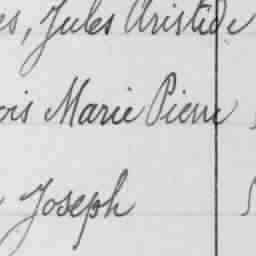 es, Jules Aristide
ois Marie Pierre
Joseph